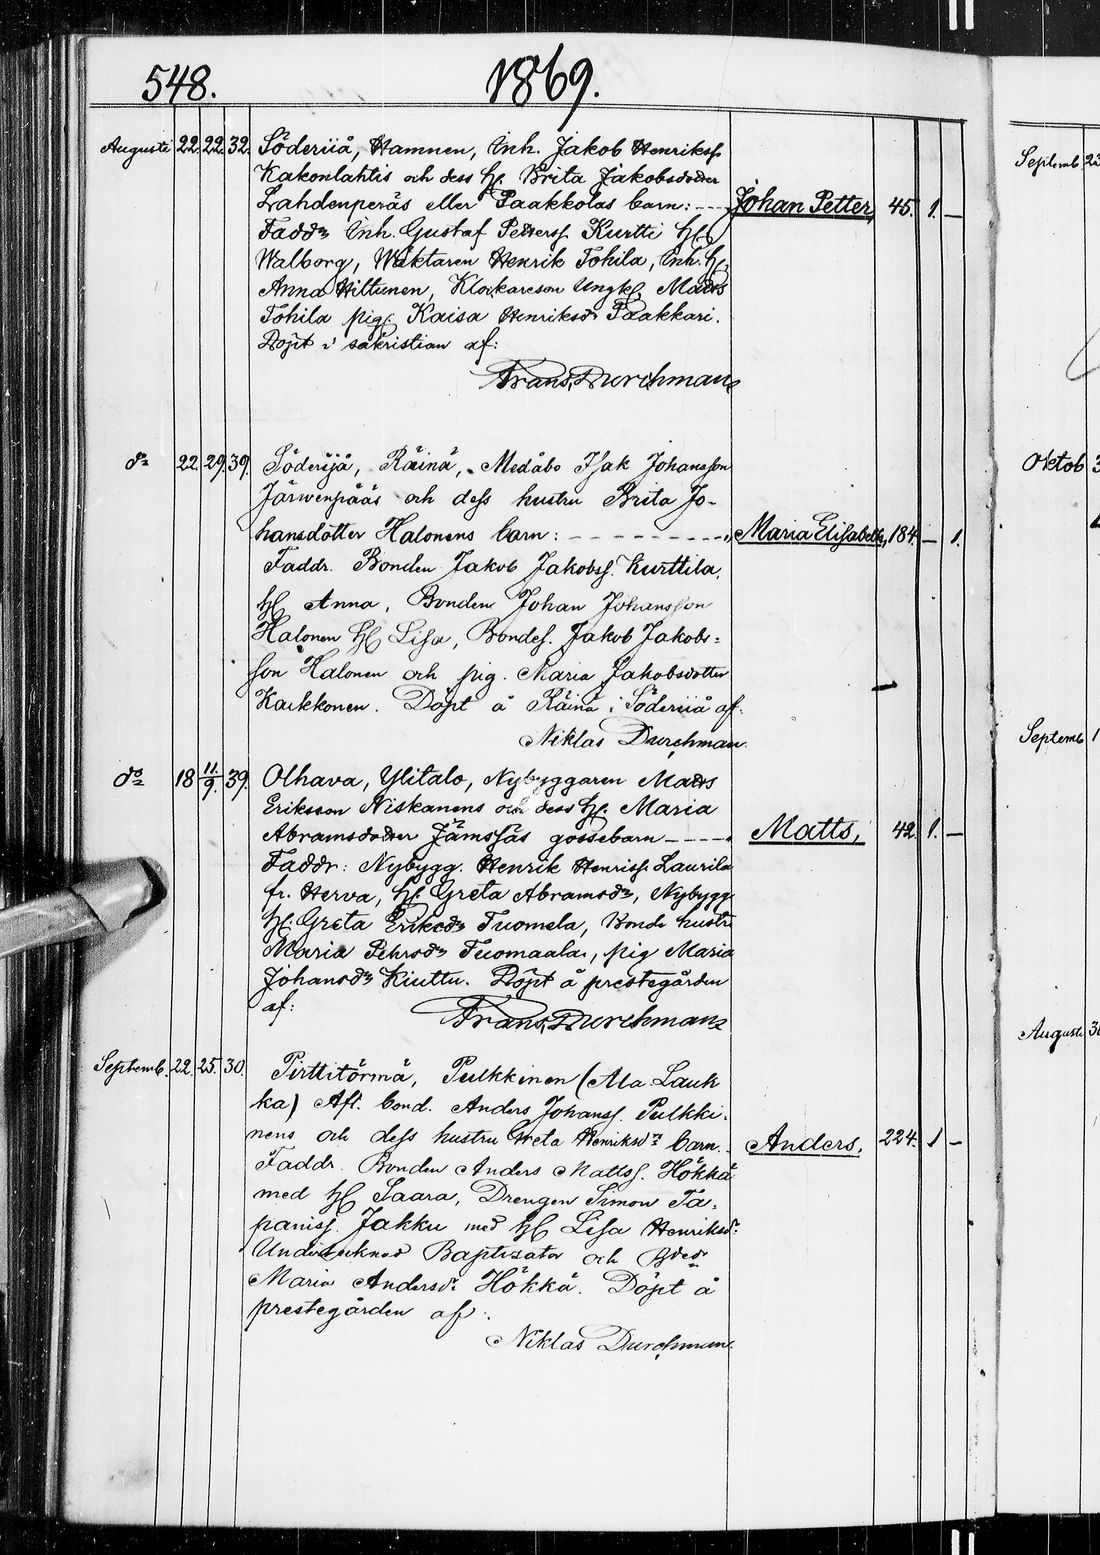 548. 1869.
Augusti 22. 22. 32. Söderiiå, Hamnen, Inh. Jakob Henrikss.
Kakonlahtis och dess H. Brita Jakobsdotter
Lahdenperäs eller Paakkolas barn: --- Johan Petter, 45. 1. —
Faddr Inh. Gustaf Petterss. Kurtti H.
Walborg, Wäktaren Henrik Tohila, Inh. H.
Anna Hiltunen, Klockareson Ungk. Matts
Tohila pig. Kaisa Henriksdr Paakkari.
Döpt i sakristian af:
Frans Durchman
do 22. 29. 39. Söderijå, Räinä, Medåbo Isak Johansson
Järwenpääs och dess hustru Brita Jo-
hansdotter Halonens barn: --------- Maria Elisabeth, 184. — 1.
Faddr. Bonden Jakob Jakobss. Kurttila,
H. Anna, Bonden Johan Johansson
Halonen H. Lisa, Bondes. Jakob Jakobs-
son Halonen och pig. Maria Jakobsdotter
Kaikkonen. Döpt å Räinä i Söderiiå af:
Niklas Durchman.
do 18 11/9. 39. Olhava, Ylitalo, Nybyggaren Matts
Eriksson Niskanens och dess H. Maria
Abramsdotter Jämsäs gossebarn ---- Matts, 42. 1. —
Faddr: Nybygg. Henrik Henriss. Laurila
fr. Herva, H. Greta Abramsdr, Nybygg
H. Greta Eriksdr Tuomela, Bonde hustr
Maria Pehrsdr Tuomaala, pig Maria
Johansdr Kiuttu. Döpt å prestegården
af:
Frans Durchman
Septemb. 22. 25. 30. Pirttitörmä, Pulkkinen (Ala Lauk
ka) Aft. bond. Anders Johanss. Pulkki-
nens och dess hustru Greta Henriksdr barn. Anders, 224. 1 —
Faddr. Bonden Anders Mattss. Hökkä
med H. Saara, Drengen Simon Ta-
paniss. Jakku med H. Lisa Henriksdr
Undertecknad Baptisator och
Maria Andersdr Hökkä. Döpt å
prestegården af:
Niklas Durchman.
Septemb 23
Oktob 3
Septemb 1
Augusti 30